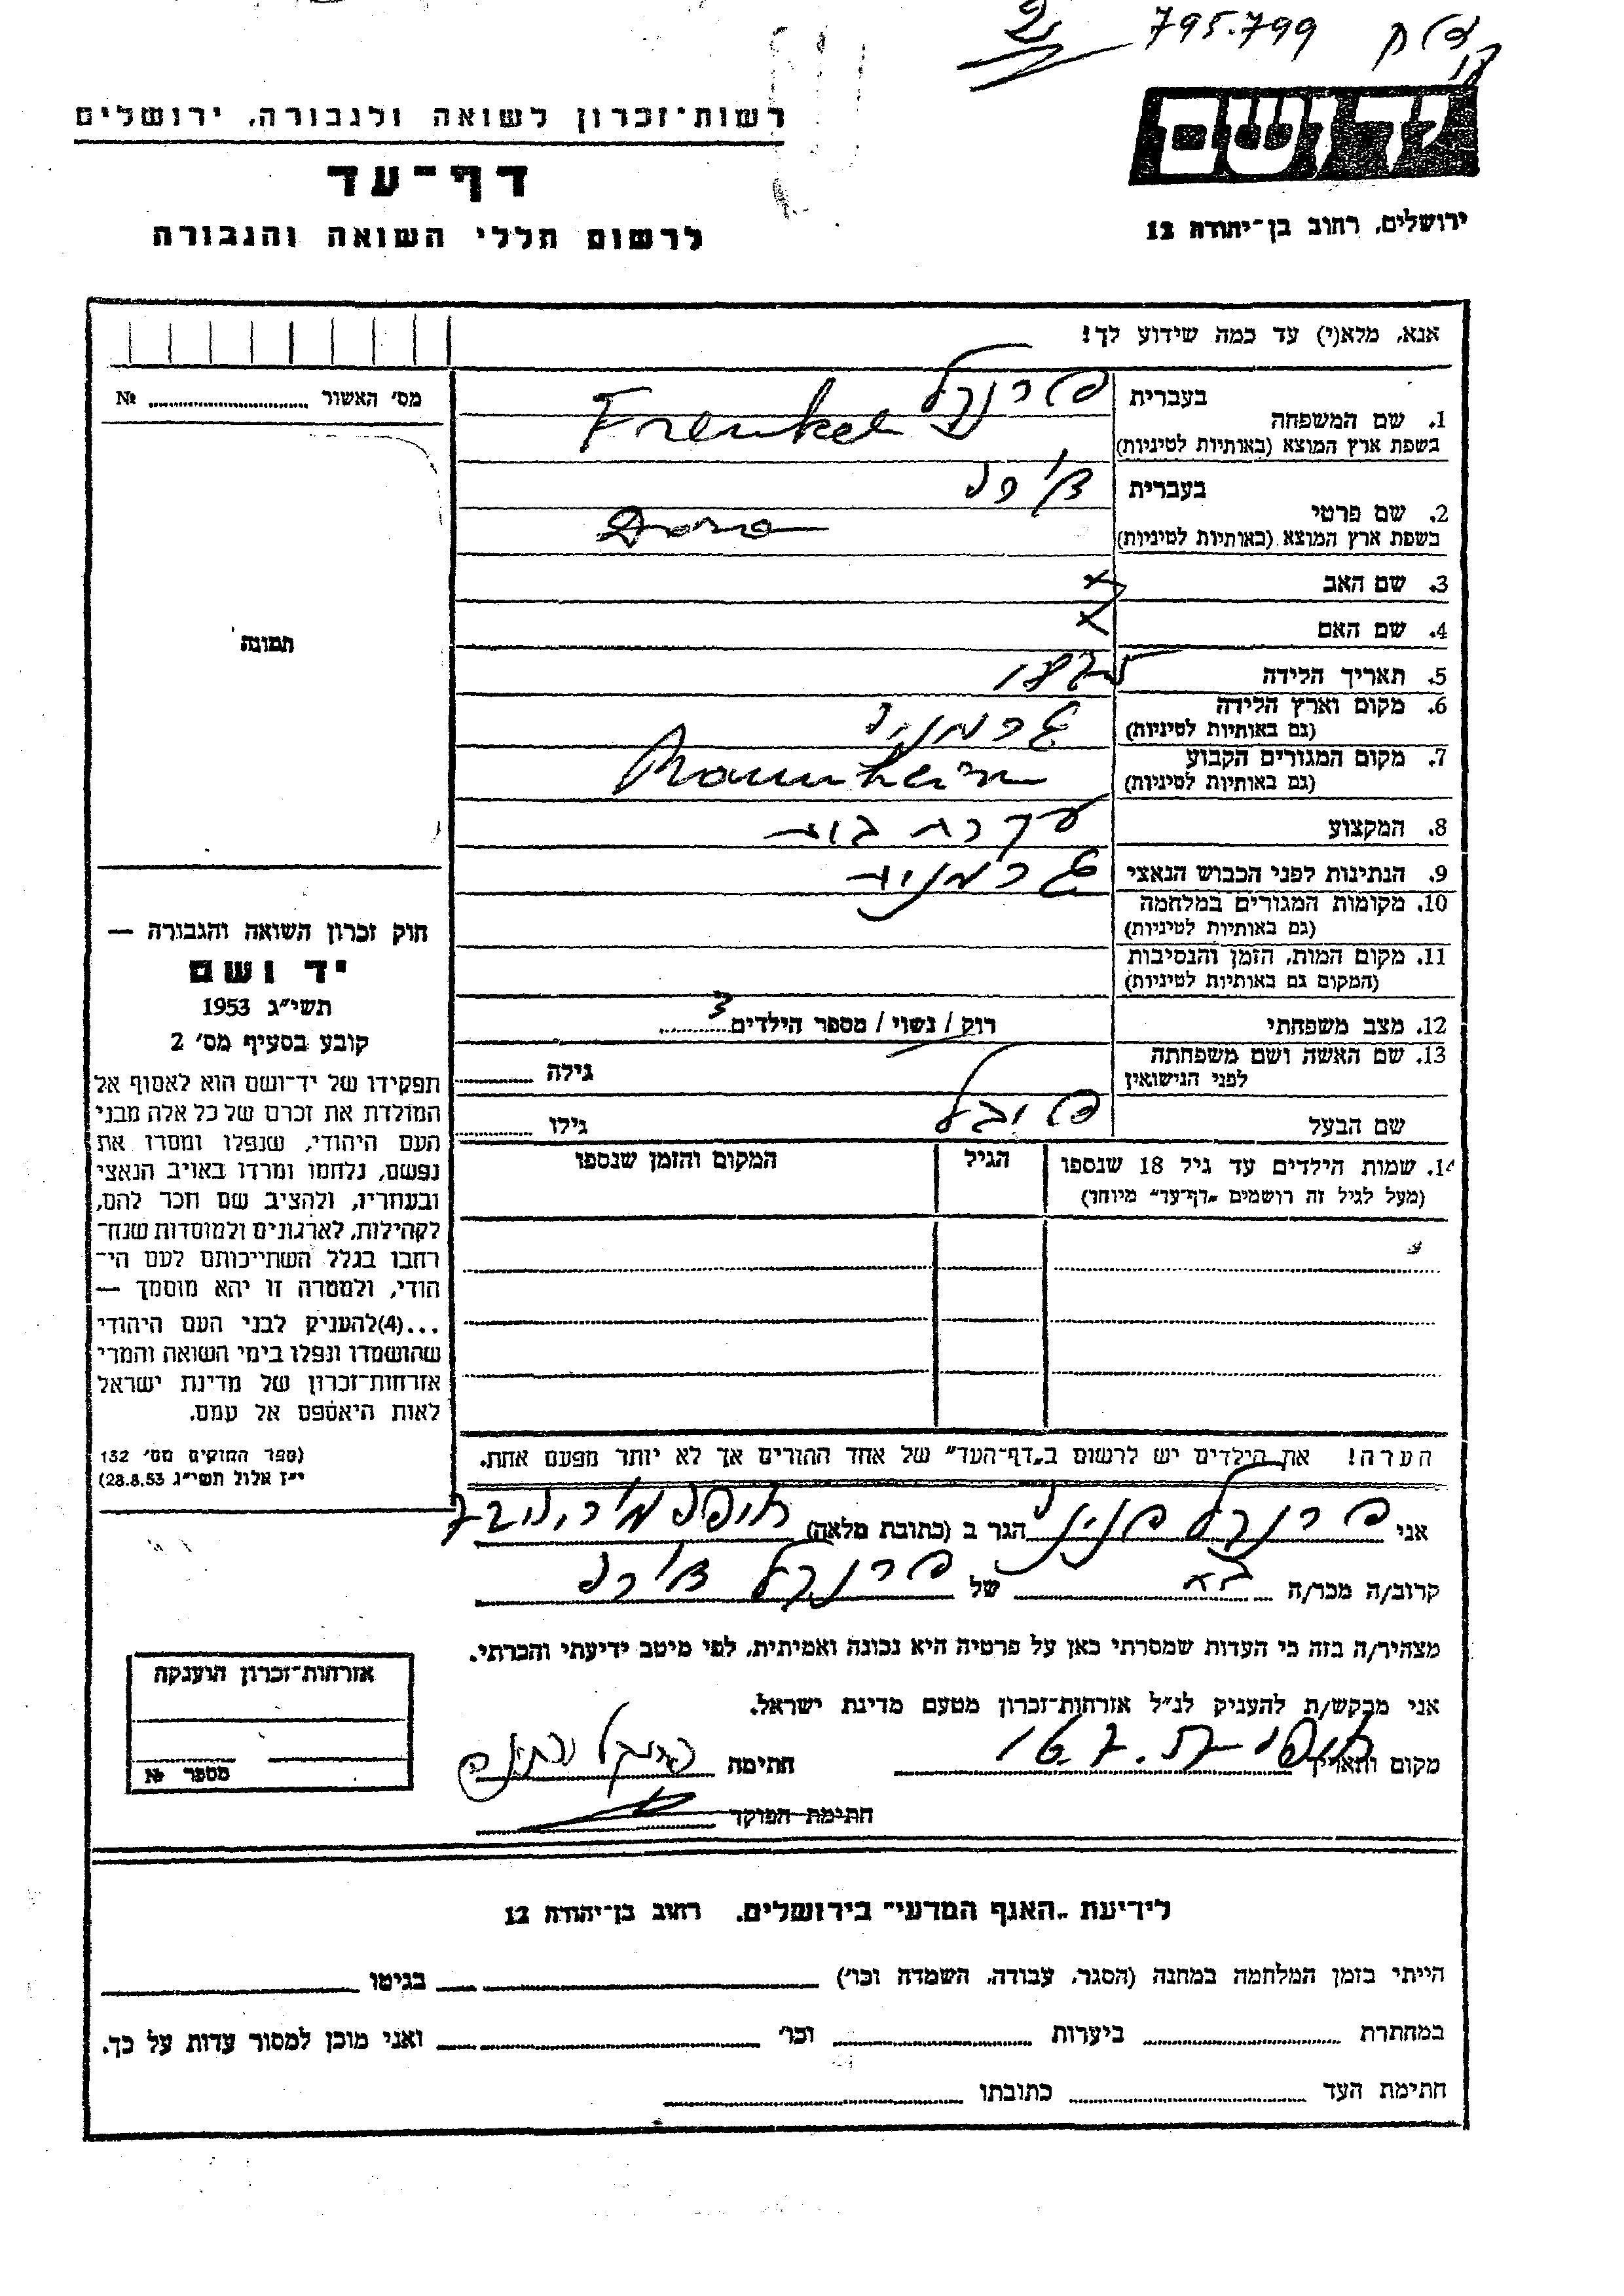 795.799
יד ושם
רשות־זכרון לשואה ולגבורה, ירושלים
דף־עד
לרשום חללי השואה והגבורה
ירושלים, רחוב בן־יהודה 12
אנא, מלא(י) עד כמה שידוע לך!
מס׳ האשור № ..........
1. שם המשפחה
בעברית פרנקל
בשפת ארץ המוצא (באותיות לטיניות) Frenkel
2. שם פרטי
בעברית
בשפת ארץ המוצא (באותיות לטיניות) Dora
3. שם האב x
4. שם האם x
5. תאריך הלידה
6. מקום וארץ הלידה
(גם באותיות לטיניות) גרמניה
7. מקום המגורים הקבוע
(גם באותיות לטיניות) Mannheim
8. המקצוע עקרת בית
9. הנתינות לפני הכבוש הנאצי גרמניה
10. מקומות המגורים במלחמה
(גם באותיות לטיניות)
11. מקום המות, הזמן והנסיבות
(המקום גם באותיות לטיניות)
12. מצב משפחתי רוק / נשוי / מספר הילדים 3
13. שם האשה ושם משפחתה
לפני הנישואין גילה ..........
שם הבעל גילו ..........
14. שמות הילדים עד גיל 18 שנספו
(מעל לגיל זה רושמים „דף־עד״ מיוחד)
הגיל
המקום והזמן שנספו
הערה! את הילדים יש לרשום ב„דף־העד״ של אחד ההורים אך לא יותר מפעם אחת.
תמונה
חוק זכרון השואה והגבורה —
יד ושם
תשי״ג 1953
קובע בסעיף מס׳ 2
תפקידו של יד־ושם הוא לאסוף אל
המולדת את זכרם של כל אלה מבני
העם היהודי, שנפלו ומסרו את
נפשם, נלחמו ומרדו באויב הנאצי
ובעוזריו, ולהציב שם וזכר להם,
לקהילות, לארגונים ולמוסדות שנח־
רבו בגלל השתייכותם לעם הי־
הודי, ולמטרה זו יהא מוסמך —
...(4)להעניק לבני העם היהודי
שהושמדו ונפלו בימי השואה והמרי
אזרחות־זכרון של מדינת ישראל
לאות היאספם אל עמם.
(ספר החוקים מס׳ 132
י״ז אלול תשי״ג 28.8.53)
אני פרנקל הגר ב (כתובת מלאה) חיפה
קרוב/ה מכר/ה של פרנקל
מצהיר/ה בזה כי העדות שמסרתי כאן על פרטיה היא נכונה ואמיתית, לפי מיטב ידיעתי והכרתי.
אני מבקש/ת להעניק לנ״ל אזרחות־זכרון מטעם מדינת ישראל.
מקום ותאריך חיפה חתימה פרנקל
חתימת הפוקד
אזרחות־זכרון הוענקה
מספר №
לידיעת „האגף המדעי״ בירושלים, רחוב בן־יהודה 12
הייתי בזמן המלחמה במחנה (הסגר, עבודה, השמדה וכו׳) .......... בגיטו ..........
במחתרת .......... ביערות .......... וכו׳ .......... ואני מוכן למסור עדות על כך.
חתימת העד .......... כתובתו ..........